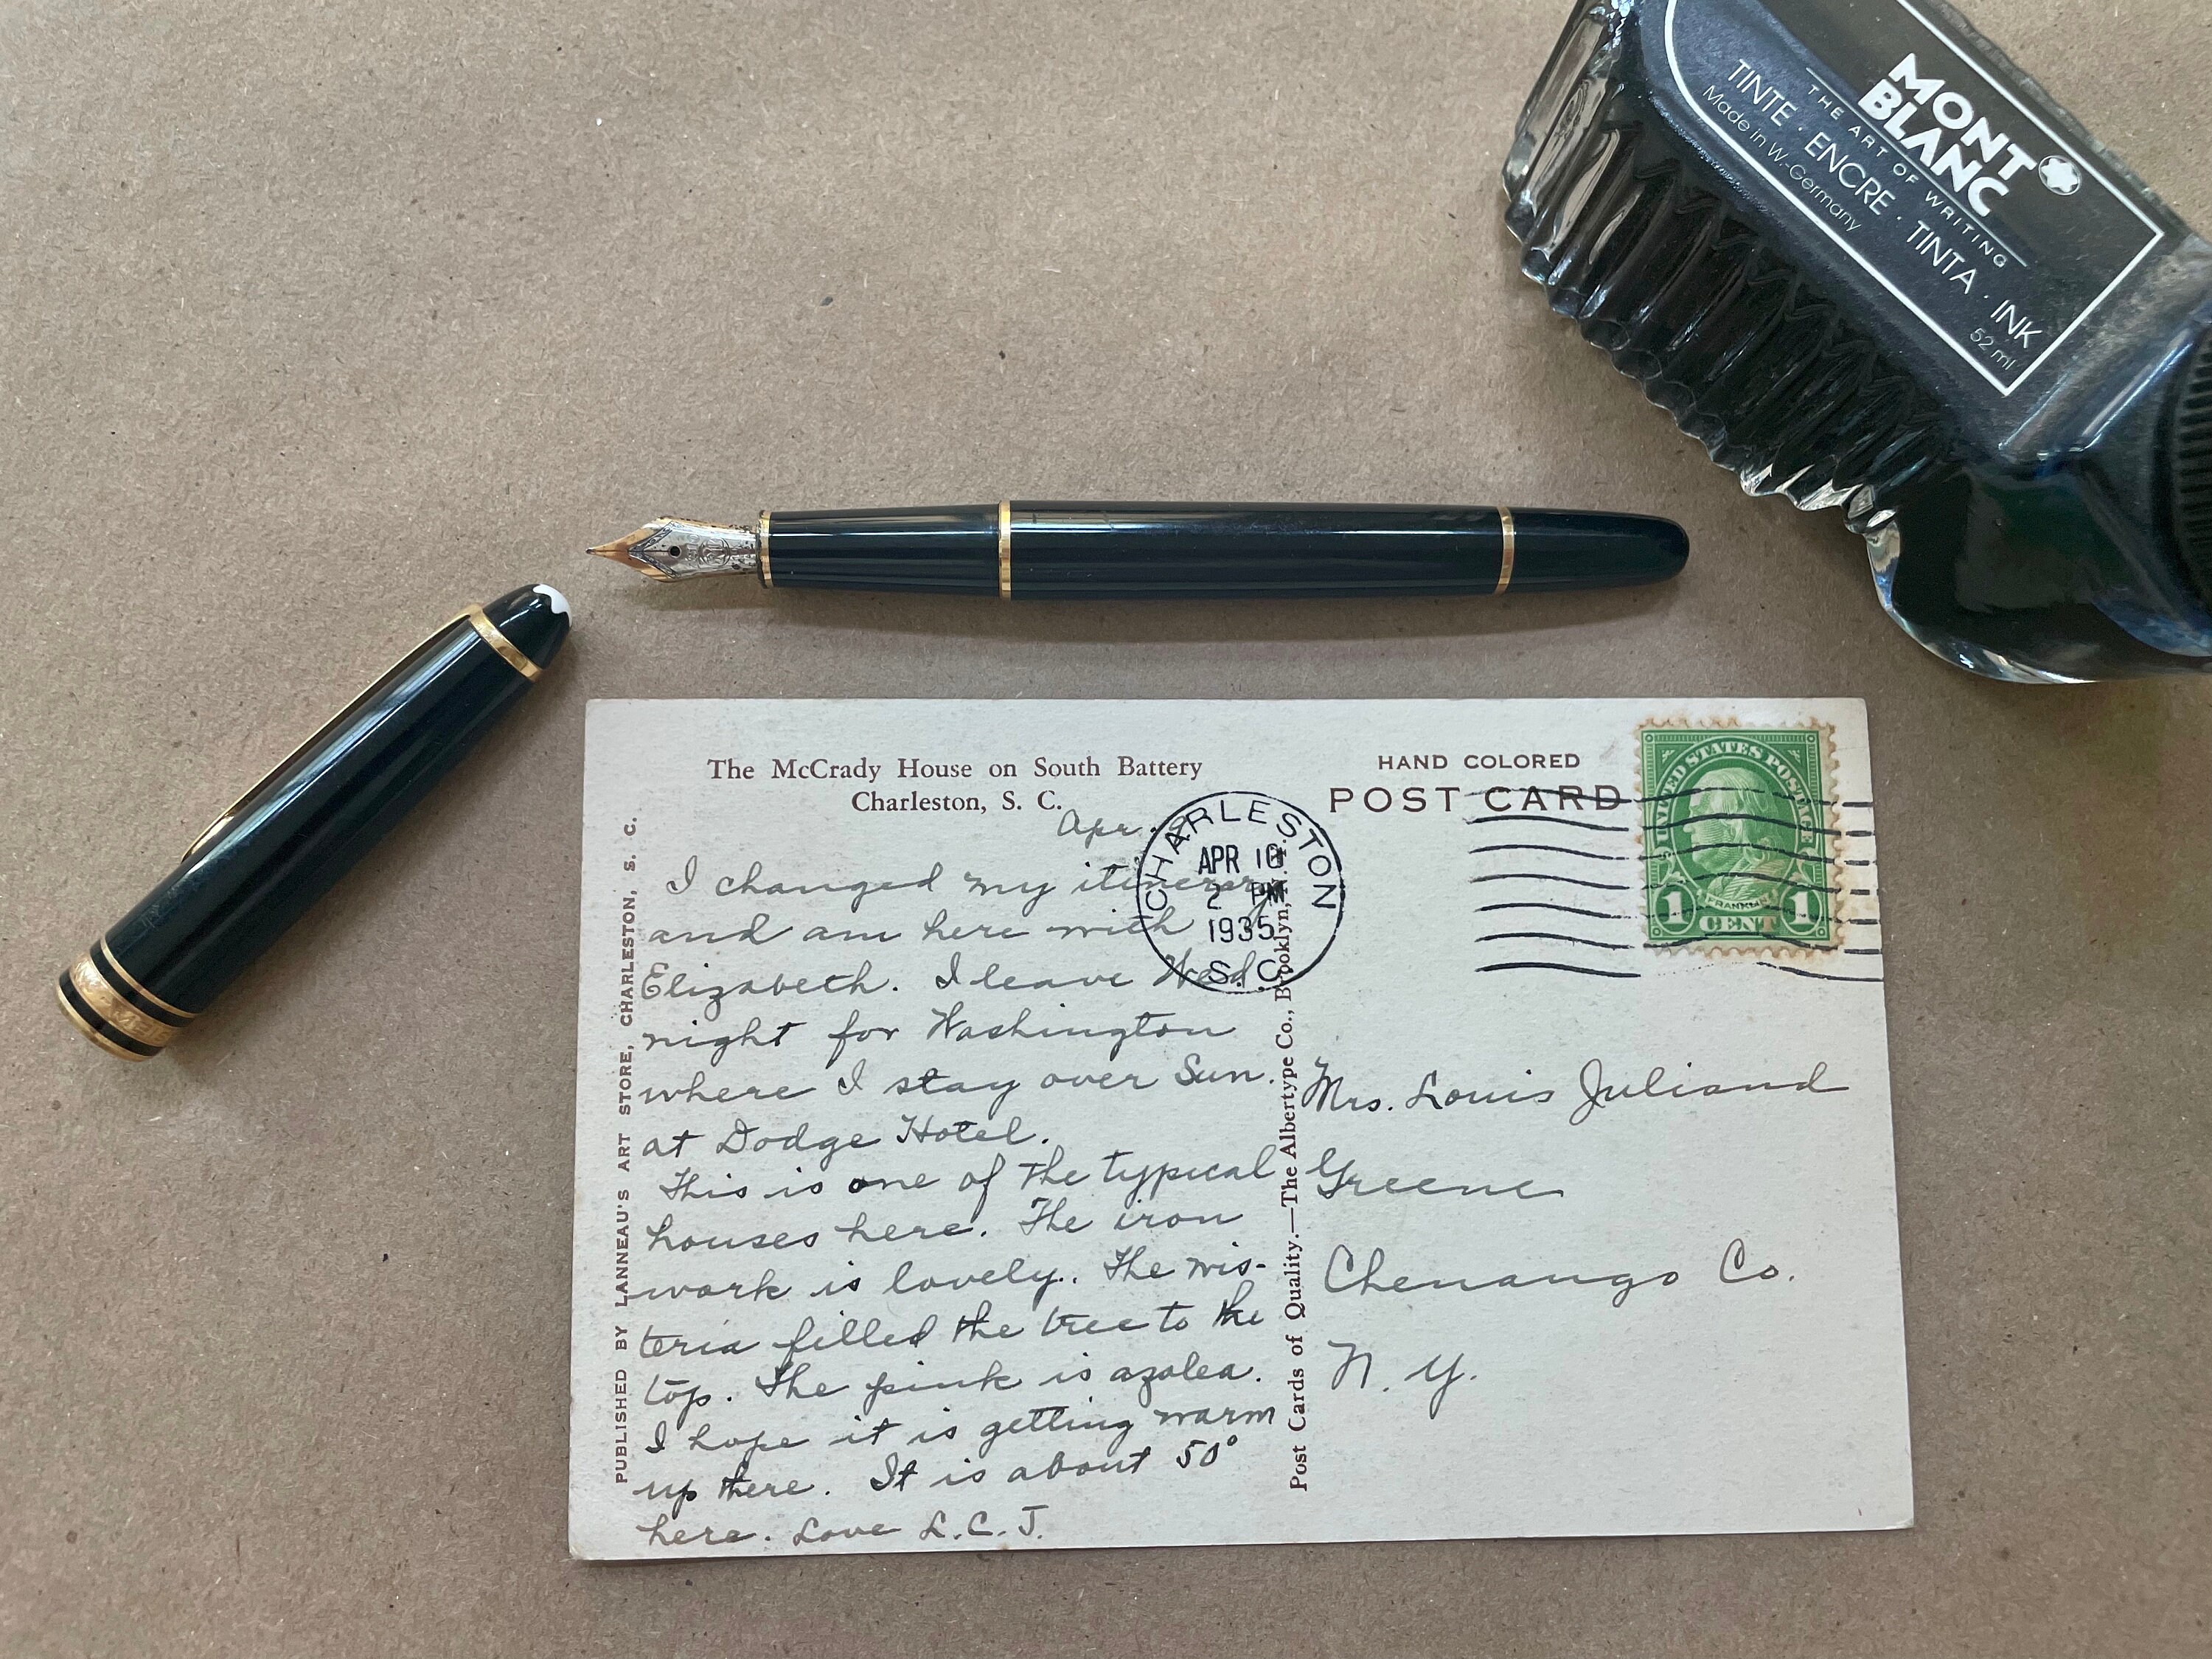 MONT
BLANC
THE ART OF WRITING
TINTE · ENCRE · TINTA · INK
Made in W.-Germany
52 ml
The McCrady House on South Battery
Charleston, S. C.
HAND COLORED
POST CARD
UNITED STATES POSTAGE
FRANKLIN
1 CENT 1
CHARLESTON
APR 10
2 PM
1935
S. C.
PUBLISHED BY LANNEAU'S ART STORE, CHARLESTON, S. C.
Post Cards of Quality.—The Albertype Co., Brooklyn, N. Y.
Apr.
I changed my itinerary
and am here with
Elizabeth. I leave Wed.
night for Washington
where I stay over Sun.
at Dodge Hotel.
This is one of the typical
houses here. The iron
work is lovely. The wis-
teria filled the tree to the
top. The pink is azalea.
I hope it is getting warm
up there. It is about 50°
here. Love L.C.J.
Mrs. Louis Juliand
Greene
Chenango Co.
N. Y.